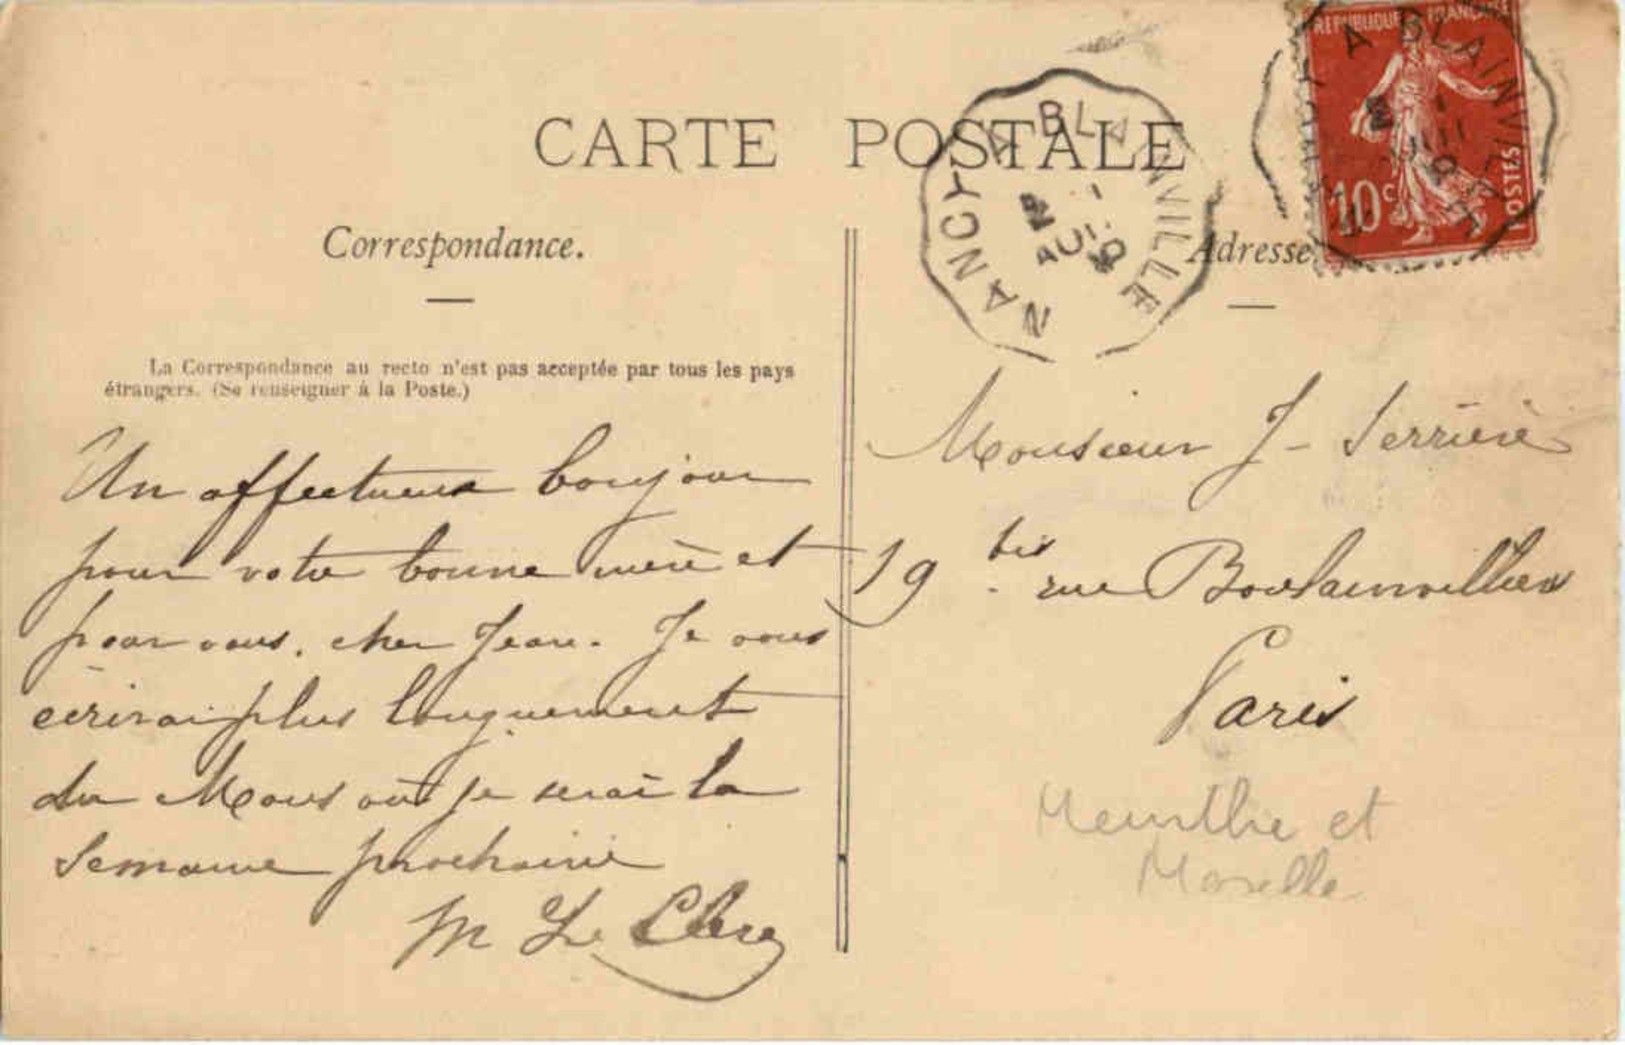 CARTE POSTALE
Correspondance.
La Correspondance au recto n'est pas acceptée par tous les pays
étrangers. (Se renseigner à la Poste.)
Un affectueux bonjour
pour votre bonne mère et
pour vous, cher Jean. Je vous
écrirai plus longuement
du Mans où je serai la
semaine prochaine
M Le Clerc
REPUBLIQUE FRANÇAISE
10c
POSTES
NANCY A BLAINVILLE
NANCY A BLAINVILLE
Adresse
Monsieur J- Serrière
19 bis rue Boulainvilliers
Paris
Meurthe et
Moselle